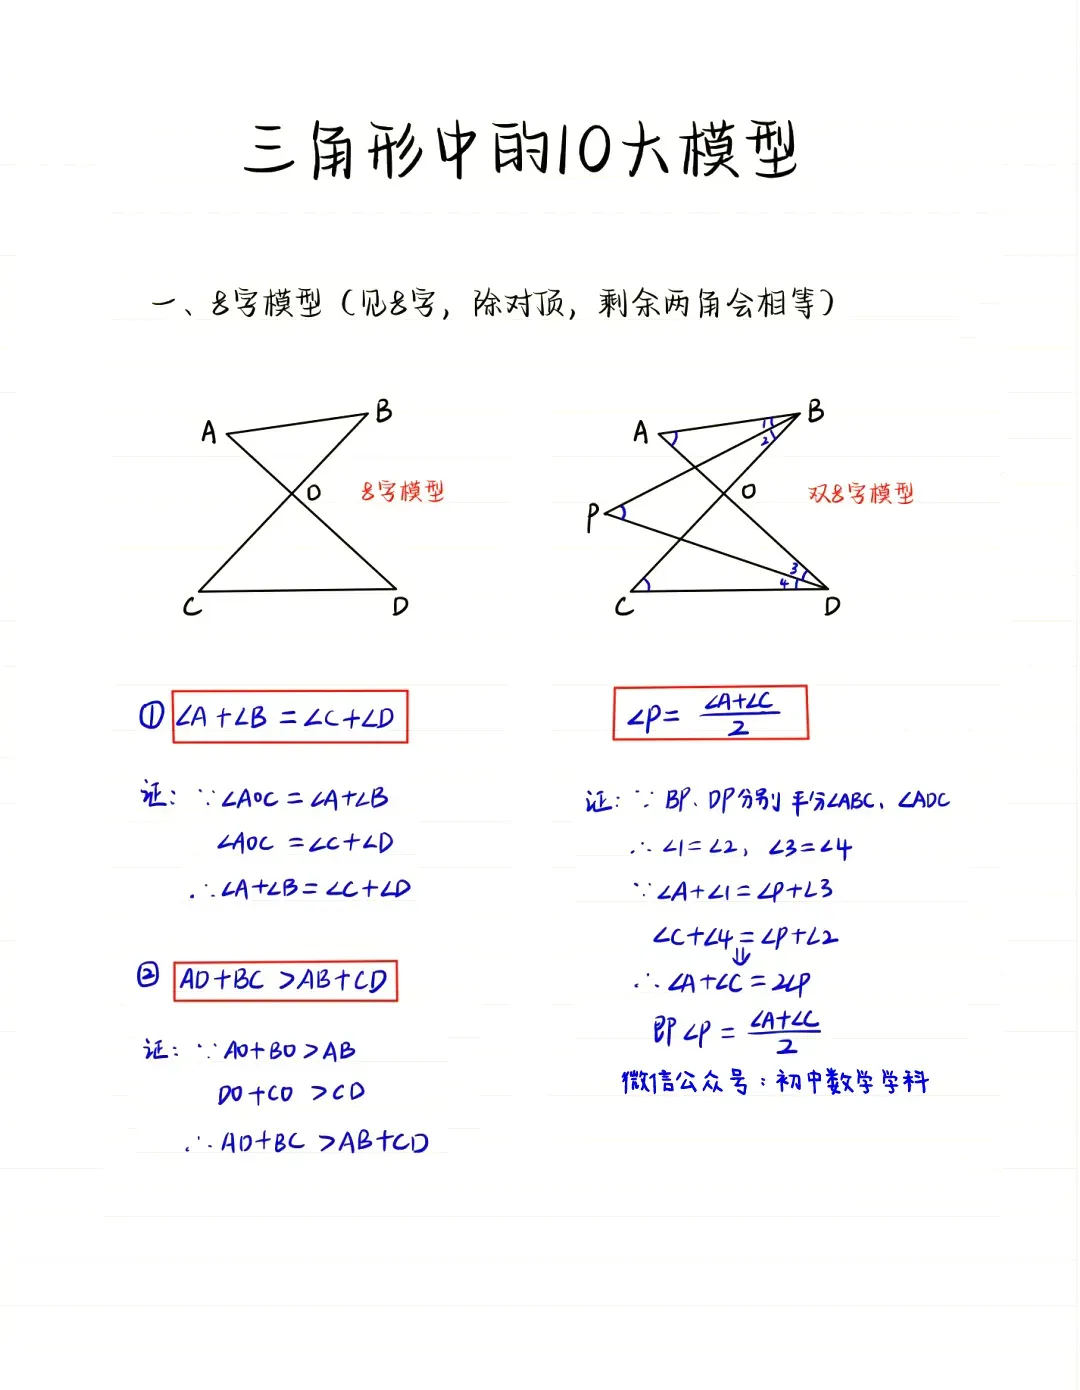 三角形中的10大模型
一、8字模型（见8字，除对顶，剩余两角会相等）
A
B
O
8字模型
C
D
① ∠A+∠B=∠C+∠D
证：∵∠AOC=∠A+∠B
∠AOC=∠C+∠D
∴∠A+∠B=∠C+∠D
② AD+BC>AB+CD
证：∵AO+BO>AB
DO+CO>CD
∴AD+BC>AB+CD
A
B
1
2
O
双8字模型
P
3
4
C
D
∠P=(∠A+∠C)/2
证：∵BP、DP分别平分∠ABC、∠ADC
∴∠1=∠2，∠3=∠4
∵∠A+∠1=∠P+∠3
∠C+∠4=∠P+∠2
⇓
∴∠A+∠C=2∠P
即∠P=(∠A+∠C)/2
微信公众号：初中数学学科